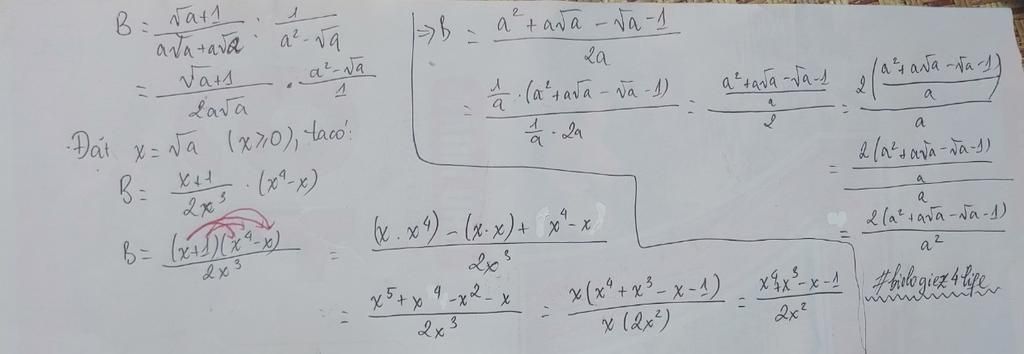 B = \frac{√a+1}{a√a+a√a} : \frac{1}{a²-√a}
= \frac{√a+1}{2a√a} · \frac{a²-√a}{1}
·Đặt x = √a (x≥0), ta có:
B = \frac{x+1}{2x³} · (x⁴-x)
B = \frac{(x+1)(x⁴-x)}{2x³} = \frac{(x.x⁴)-(x.x)+ x⁴-x}{2x³}
= \frac{x⁵+x⁴-x²-x}{2x³} = \frac{x(x⁴+x³-x-1)}{x(2x²)} = \frac{x⁴+x³-x-1}{2x²}
⇒ B = \frac{a²+a√a-√a-1}{2a}
= \frac{\frac{1}{a}·(a²+a√a-√a-1)}{\frac{1}{a}·2a} = \frac{\frac{a²+a√a-√a-1}{a}}{2} = \frac{2(\frac{a²+a√a-√a-1}{a})}{a}
= \frac{\frac{2(a²+a√a-√a-1)}{a}}{a}
= \frac{2(a²+a√a-√a-1)}{a²}
#biologiez4life